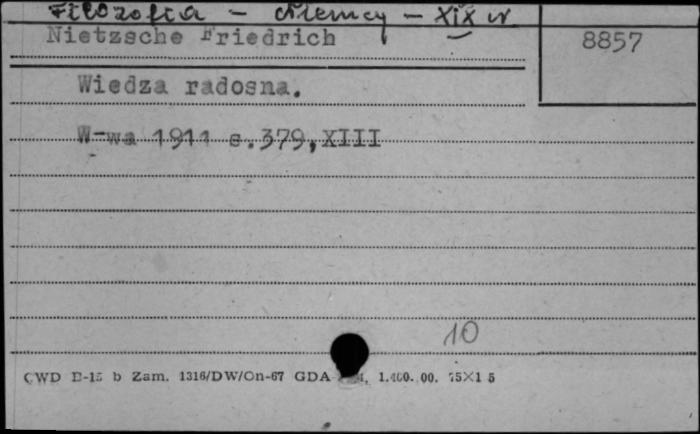 Filozofia - Niemcy - XIX w.
Nietzsche Friedrich
8857
Wiedza radosna.
W-wa 1911 s.379,XIII
10
CWD D-15 b Zam. 1316/DW/On-67 GDA